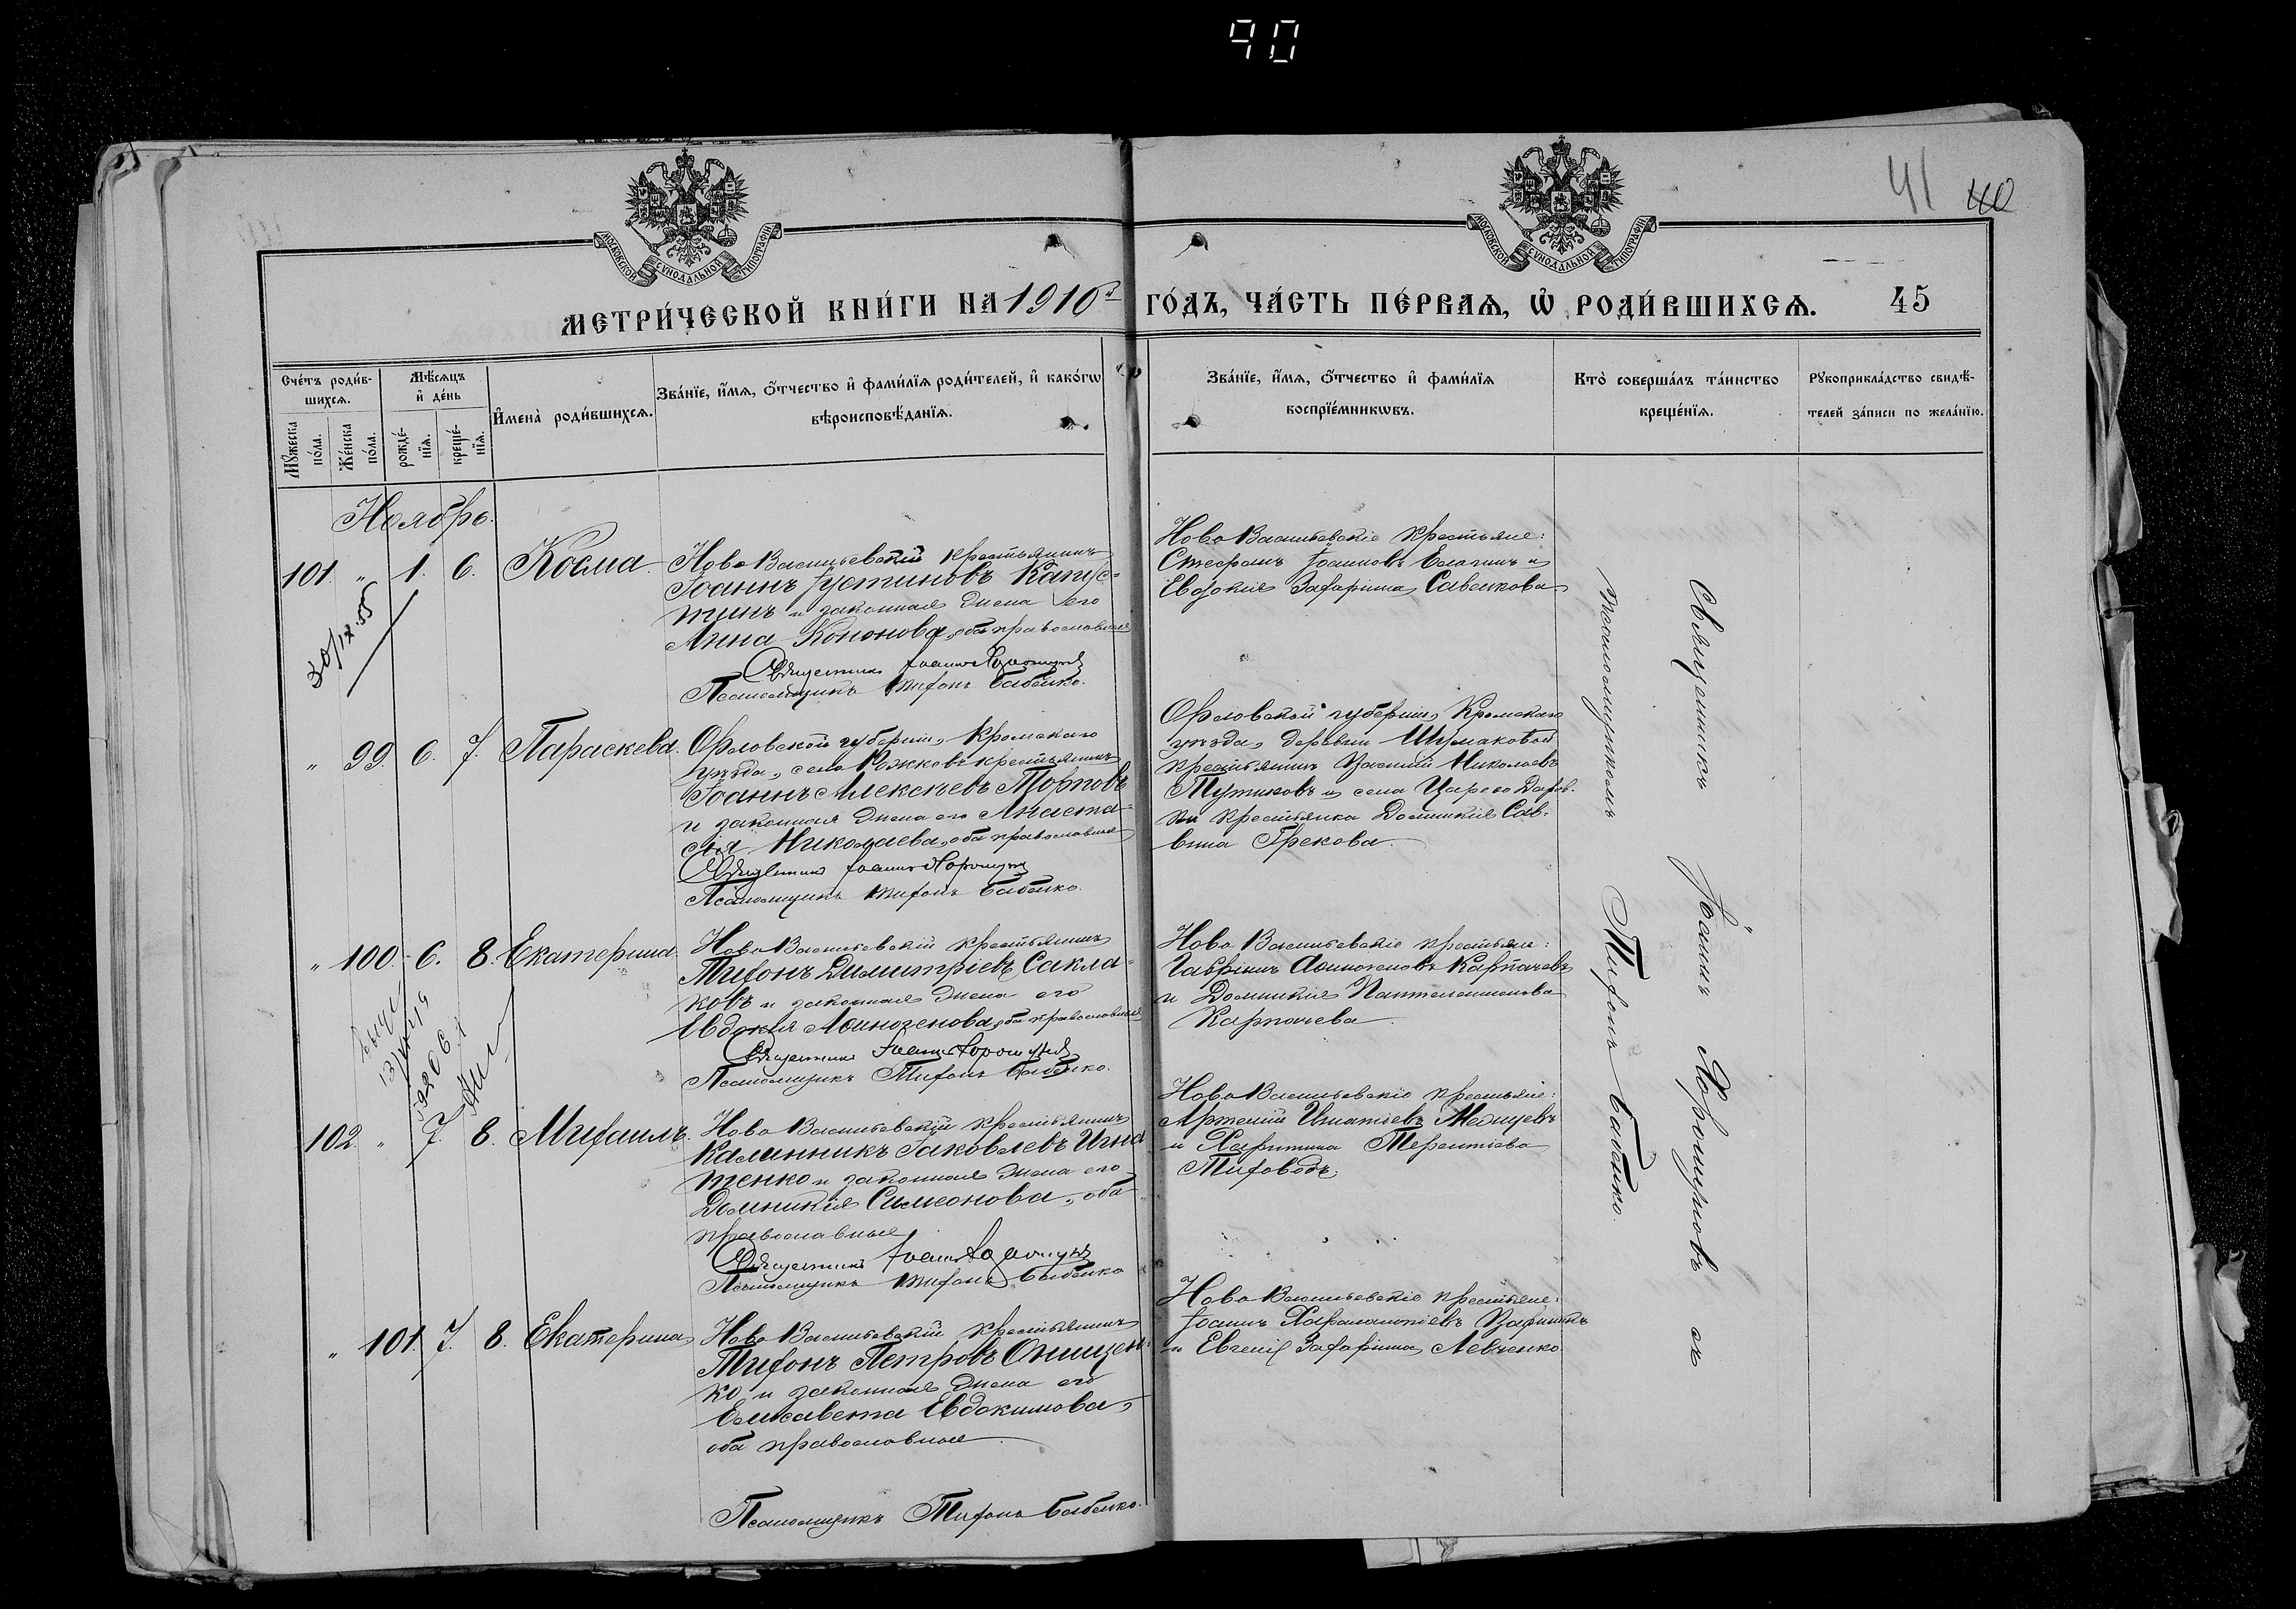 90
41 40
МОСКОВСКОЙ СѴНОДАЛЬНОЙ ТИПОГРАФІИ
МОСКОВСКОЙ СѴНОДАЛЬНОЙ ТИПОГРАФІИ
МЕТРИ́ЧЕСКОЙ КНИ́ГИ НА 1910й ГО́ДЪ, ЧА́СТЬ ПЕ́РВАѦ, Ѡ РОДИ́ВШИХСѦ. 45
Сче́тъ роди́в-
шихсѧ.
Мꙋ́жеска
по́ла.
Же́нска
по́ла.
Мѣ́сѧцъ
и҆ де́нь
рожде́-
нїѧ.
креще́-
нїѧ.
И҆мена̀ роди́вшихсѧ.
Зва́нїе, и҆́мѧ, ѻ҆́тчество и҆ фами́лїѧ роди́телей, и҆ како́гѡ
вѣроисповѣ́данїѧ.
Зва́нїе, и҆́мѧ, ѻ҆́тчество и҆ фами́лїѧ
воспрїе́мникѡвъ.
Кто̀ соверша́лъ та́инство
креще́нїѧ.
Рꙋкоприкла́дство свидѣ́-
телей за́писи по жела́нїю.
Ноябрь.
101. " 1. 6. Косма.
Ново Васильевскій крестьянинъ
Іоаннъ Іустиновъ Капус-
тинъ и законная жена его
Анна Кононова, оба православные
Священникъ Іоаннъ Хорошуновъ
Псаломщикъ Тихонъ Бабенко.
Ново Васильевскіе крестьяне:
Стефанъ Іоанновъ Елагинъ и
Евдокія Захаріина Савенкова
" 99. 6. 7. Параскева.
Орловской губерніи, Кромскаго
уѣзда, села Рожковъ крестьянинъ
Іоаннъ Алексѣевъ Торповъ
и законная жена его Анаста-
сія Николаева, оба православные
Священникъ Іоаннъ Хорошуновъ
Псаломщикъ Тихонъ Бабенко.
Орловской губерніи, Кромскаго
уѣзда, деревни Шумаковой
крестьянинъ Василій Николаевъ
Тутиковъ и села Царево Даров-
ки крестьянка Домникія Сав-
вина Грекова.
" 100. 6. 8. Екатерина.
Ново Васильевскій крестьянинъ
Тихонъ Димитріевъ Сакла-
ковъ и законная жена его
Евдокія Аѳиногенова, оба православные
Священникъ Іоаннъ Хорошуновъ
Псаломщикъ Тихонъ Бабенко.
Ново Васильевскіе крестьяне:
Гавріилъ Аѳиногеновъ Карпачевъ
и Домникія Пантелеимонова
Карпачева.
102. " 7. 8. Михаилъ.
Ново Васильевскій крестьянинъ
Калинникъ Іаковлевъ Игна
тенко и законная жена его
Домникія Симеонова, оба
православные
Священникъ Іоаннъ Хорошуновъ
Псаломщикъ Тихонъ Бабенко
Ново Васильевскіе крестьяне:
Артемій Игнатіевъ Мелицевъ
и Харитина Терентіева
Тиховодъ.
" 101. 7. 8. Екатерина
Ново Васильевскій крестьянинъ
Тихонъ Петровъ Онищен-
ко и законная жена его
Елисавета Евдокимова,
оба православные
Псаломщикъ Тихонъ Бабенко.
Ново Васильевскіе крестьяне:
Іоаннъ Харалампіевъ
и Евгенія Захаріина Левченко
Священникъ Іоаннъ Хорошуновъ съ
псаломщикомъ Тихономъ Бабенко.